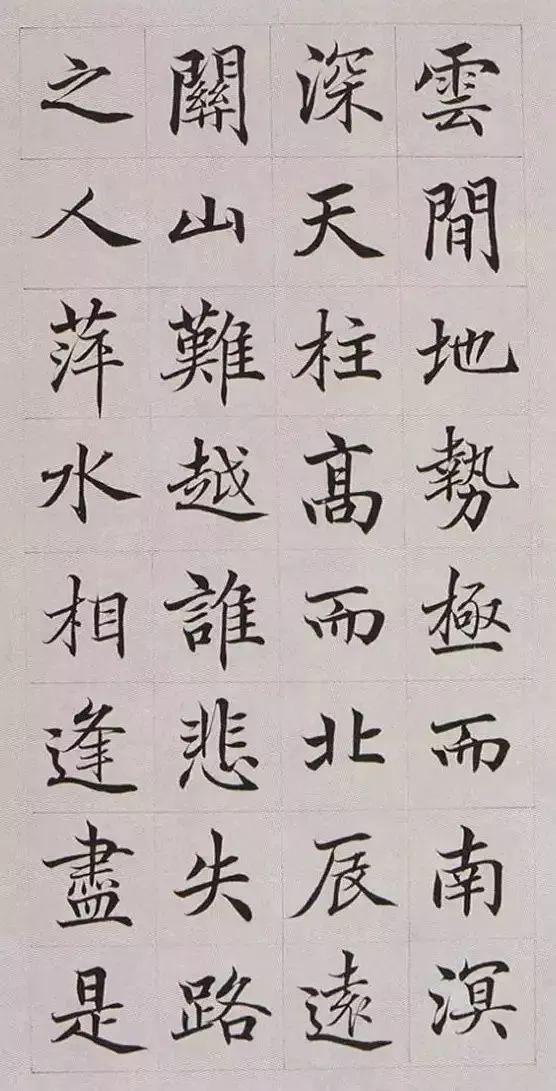 雲間地勢極而南溟
深天柱高而北辰遠
關山難越誰悲失路
之人萍水相逢盡是